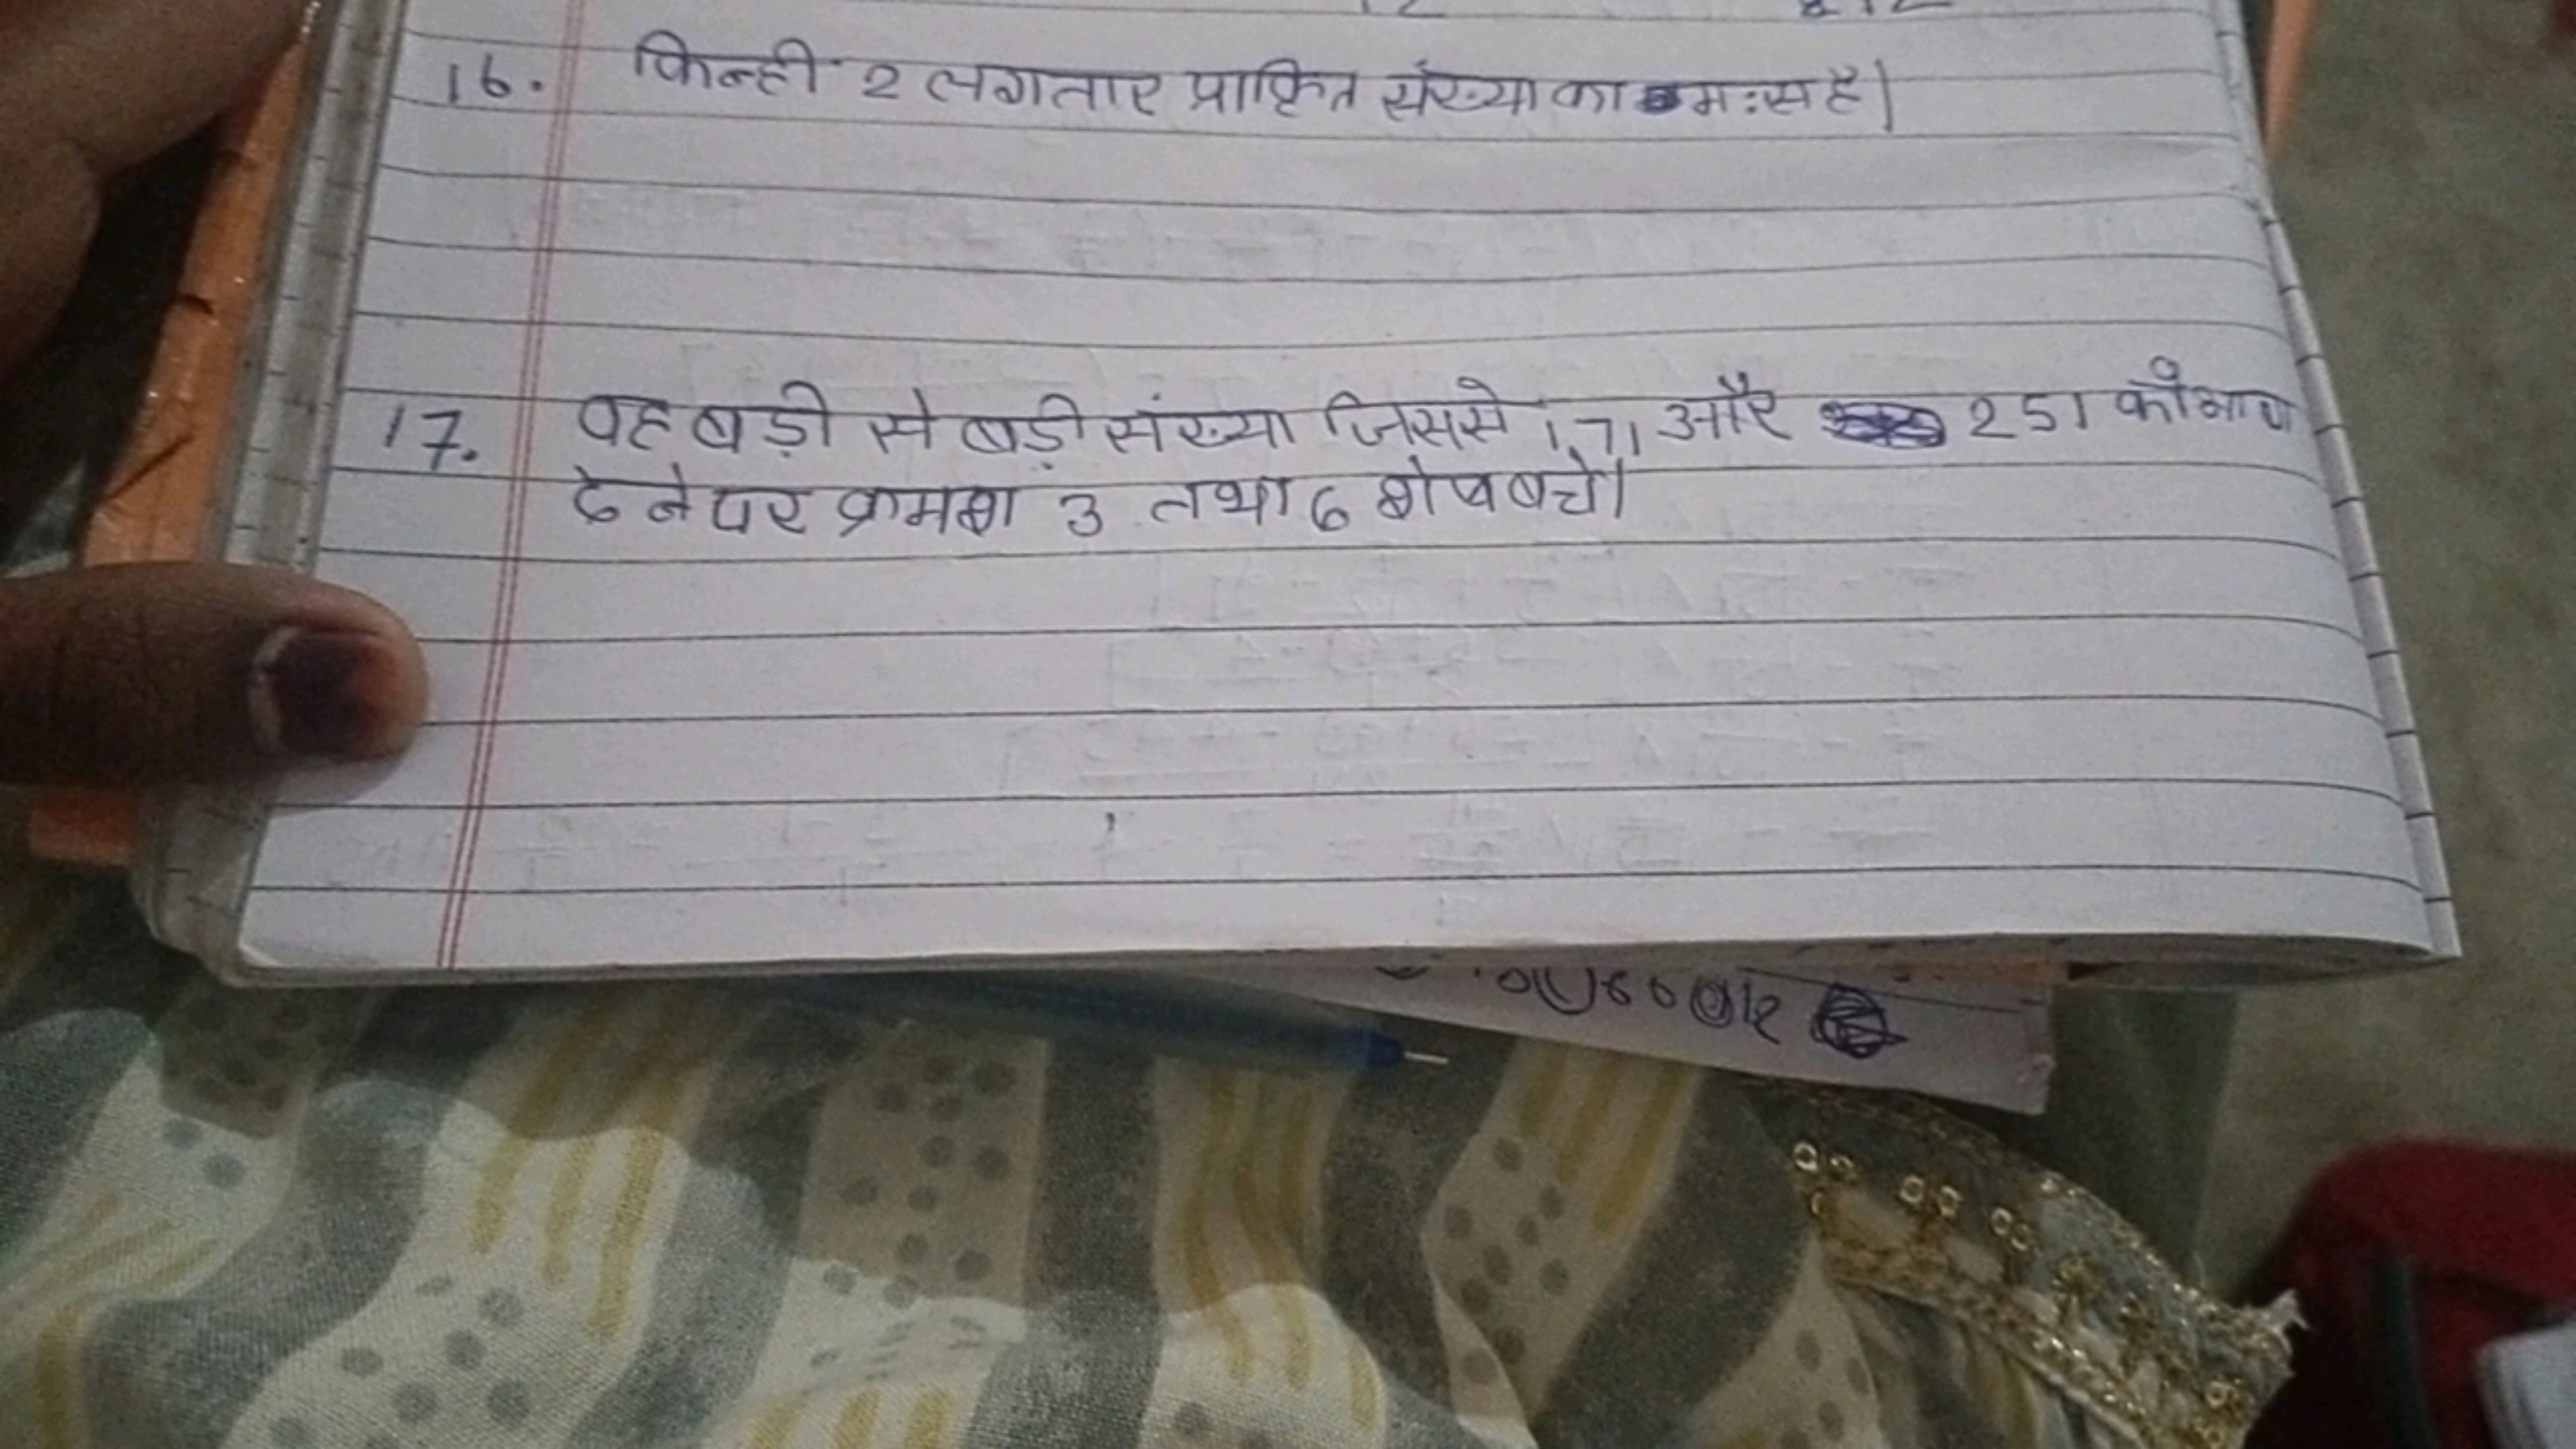 16. किन्ही 2 लगातार प्राकृित संख्या का म:स है|
17. वह बड़ी से बड़ी संख्या जिससे 171 और 251 को भाग
देने पर क्रमशा 3 तथा 6 शेष बचे|